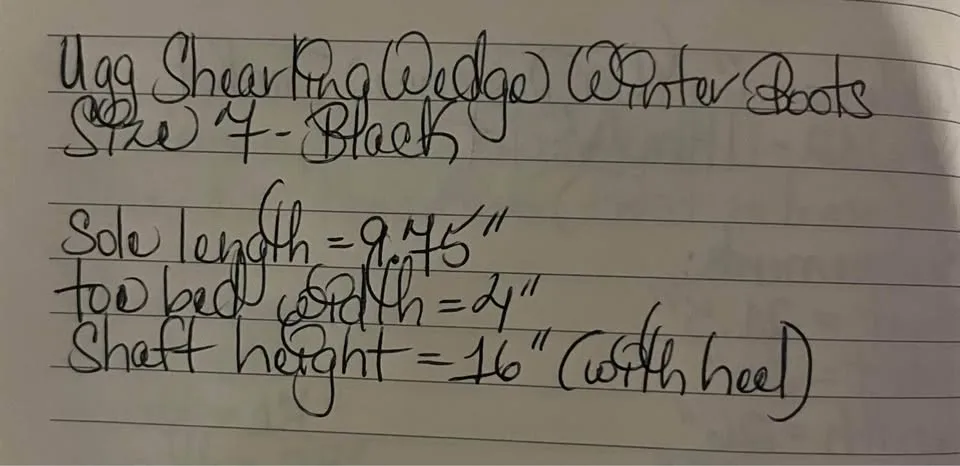 Ugg Shearling Wedge Winter Boots
Size 7 - Black
Sole length = 9.75"
toe bed width = 4"
Shaft height = 16" (with heel)